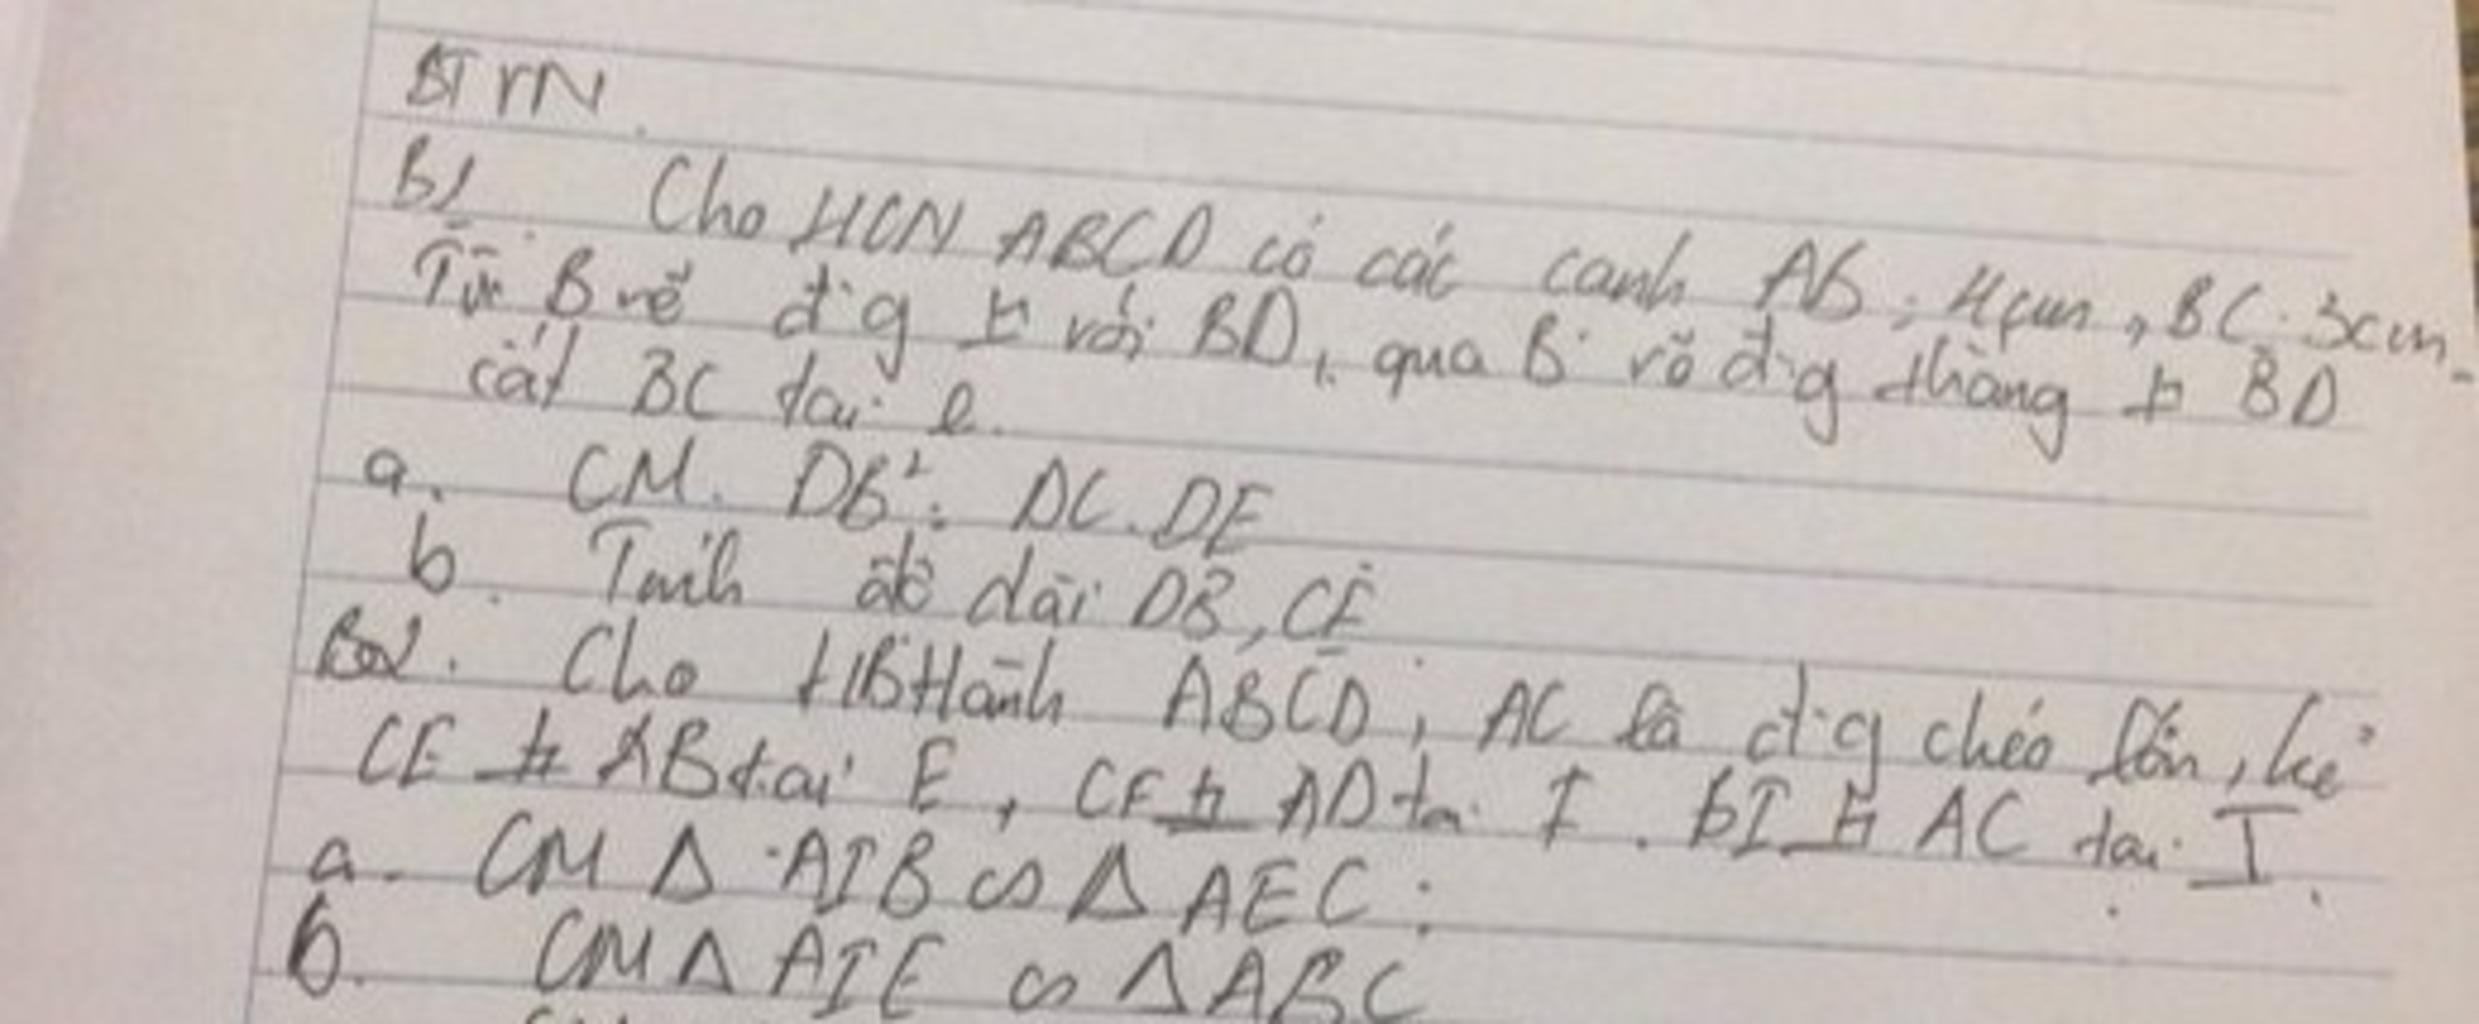 BTVN.
B1 Cho HCN ABCD có các cạnh AB = 4cm, BC = 3cm.
Từ B vẽ đ'g ⊥ với BD, qua B vẽ đ'g thẳng ⊥ BD
cắt BC tại E.
a. CM. DB² = DC.DE
b. Tính độ dài DB, CE
B2. Cho HBHành ABCD, AC là đ'g chéo lớn, kẻ
CE ⊥ AB tại E, CF ⊥ AD tại F. BI ⊥ AC tại I.
a. CM Δ AIB ∽ Δ AEC.
b. CM Δ AIE ∽ Δ ABC